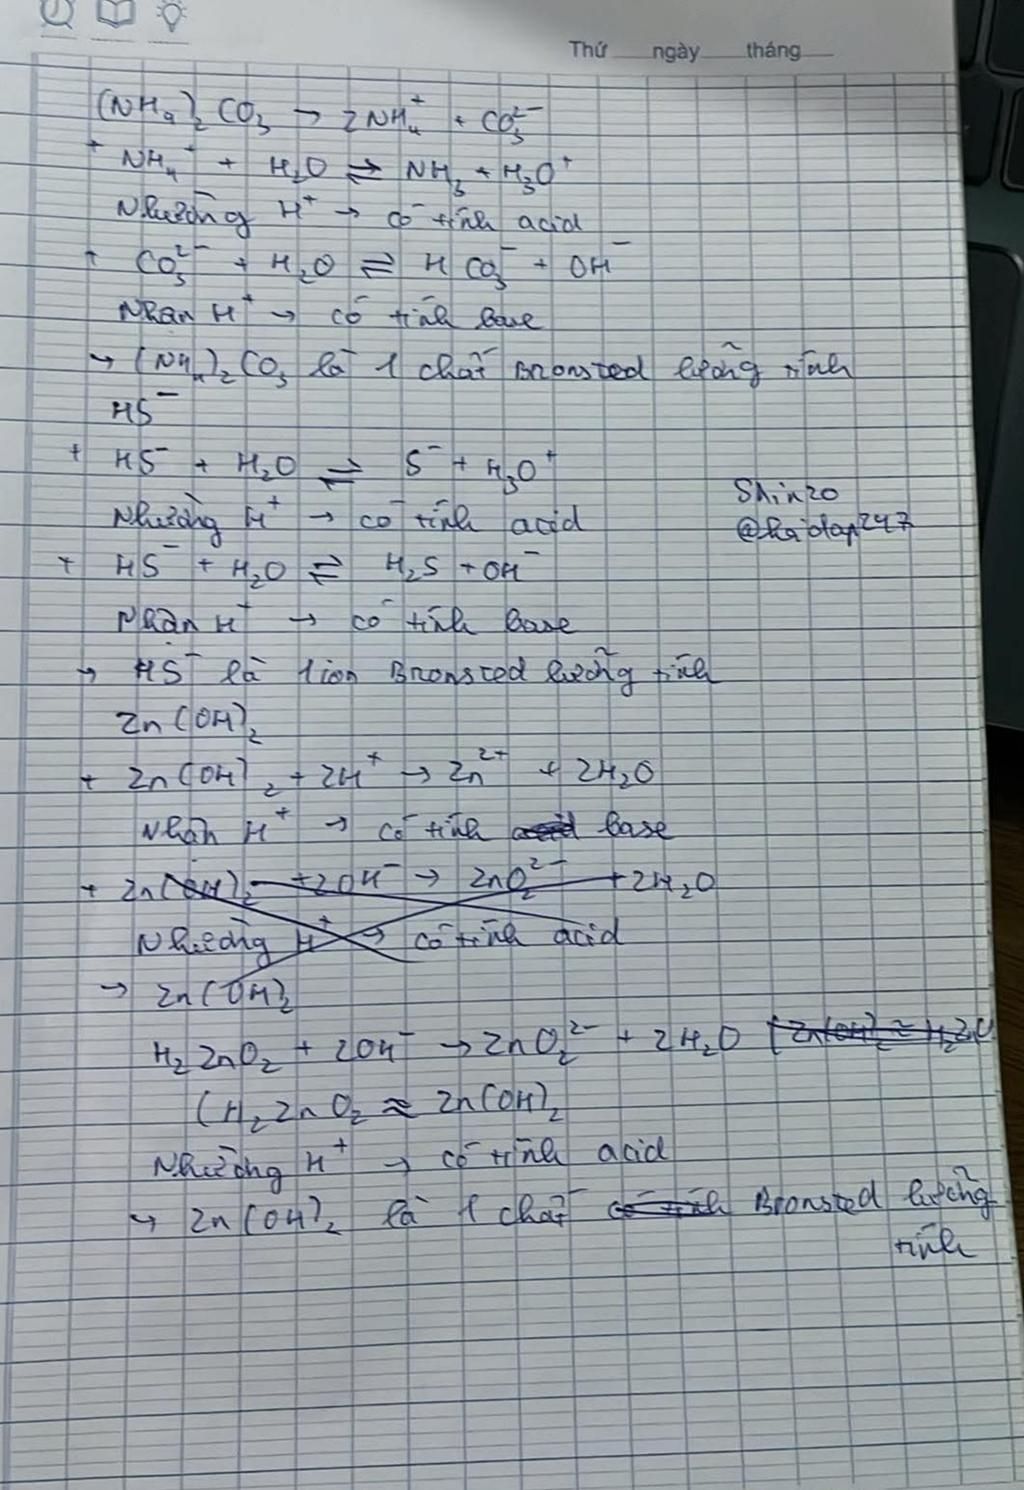 Thứ ngày tháng
(NH₄)₂CO₃ → 2NH₄⁺ + CO₃²⁻
+ NH₄⁺ + H₂O ⇌ NH₃ + H₃O⁺
Nhường H⁺ → có tính acid
+ CO₃²⁻ + H₂O ⇌ HCO₃⁻ + OH⁻
Nhận H⁺ → có tính base
→ (NH₄)₂CO₃ là 1 chất Bronsted lưỡng tính
HS⁻
+ HS⁻ + H₂O ⇌ S⁻ + H₃O⁺
Shinzo
Nhường H⁺ → có tính acid
@haidap247
+ HS⁻ + H₂O ⇌ H₂S + OH⁻
Nhận H⁺ → có tính base
→ HS⁻ là 1 ion Bronsted lưỡng tính
Zn(OH)₂
+ Zn(OH)₂ + 2H⁺ → Zn²⁺ + 2H₂O
Nhận H⁺ → có tính acid base
+ Zn(OH)₂ + 2OH⁻ → ZnO₂²⁻ + 2H₂O
Nhường H⁺ → có tính acid
→ Zn(OH)₂
H₂ZnO₂ + 2OH⁻ → ZnO₂²⁻ + 2H₂O (Zn(OH)₂ ≈ H₂ZnO
(H₂ZnO₂ ≈ Zn(OH)₂
Nhường H⁺ → có tính acid
↪ Zn(OH)₂ là 1 chất có tính Bronsted lưỡng
tính